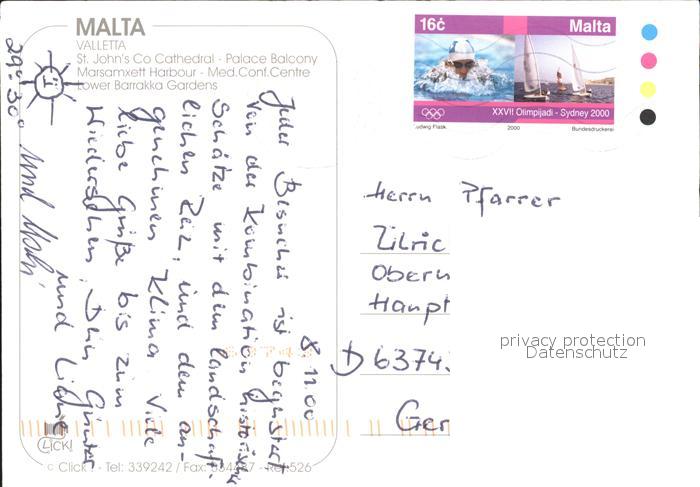 MALTA
VALLETTA
St. John's Co Cathedral - Palace Balcony
Marsamxett Harbour - Med.Conf.Centre
Lower Barrakka Gardens
16c
Malta
XXVII Olimpijadi - Sydney 2000
Ludwig Flask
2000
Bundesdruckerei
8.11.00
Jeder Besucher ist begeistert
von der Kombination historische
Schätze mit dem landschaft-
lichen Reiz, und dem an-
genehmen Klima. Viele
liebe Grüße bis zum
Wiedersehen, Dein Günter
und Liane
und
29°-30°
Herrn Pfarrer
Obern
Haupt
D 6374
Ger
privacy protection
Datenschutz
CLICK!
© Click! - Tel: 339242 / Fax: 334487 - Ref.526